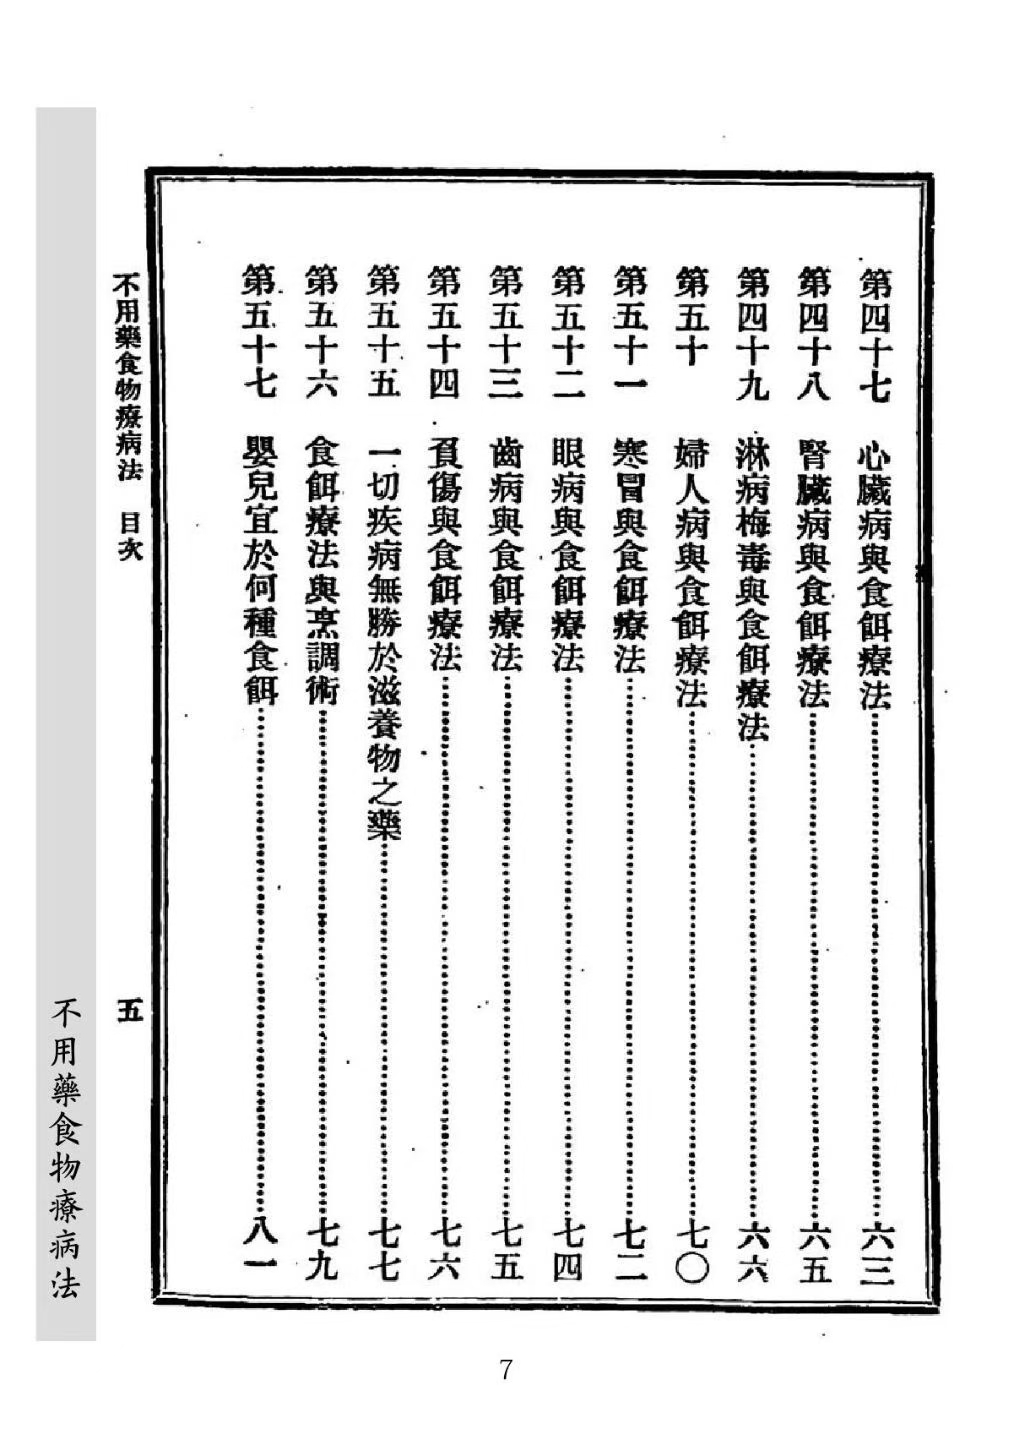 第四十七　心臟病與食餌療法……六三
第四十八　腎臟病與食餌療法……六五
第四十九　淋病梅毒與食餌療法……六六
第五十　婦人病與食餌療法……七〇
第五十一　寒冒與食餌療法……七二
第五十二　眼病與食餌療法……七四
第五十三　齒病與食餌療法……七五
第五十四　負傷與食餌療法……七六
第五十五　一切疾病無勝於滋養物之藥……七七
第五十六　食餌療法與烹調術……七九
第五十七　嬰兒宜於何種食餌……八一
不用藥食物療病法　目次　五
不用藥食物療病法
7